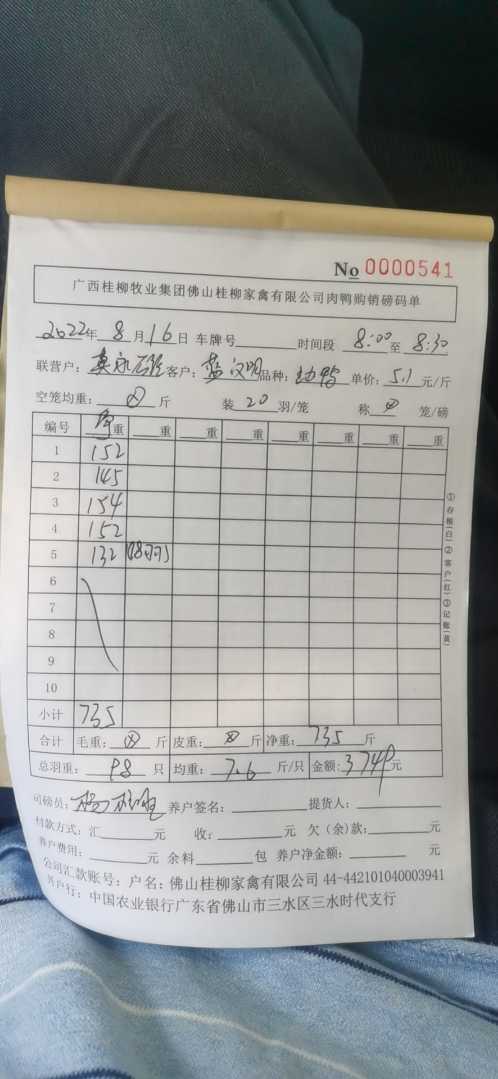 No 0000541
广西桂柳牧业集团佛山桂柳家禽有限公司肉鸭购销磅码单
2022年 8 月 16 日 车牌号 时间段 8:00 至 8:30
联营户: 客户: 蓝汉明 品种: 单价: 5.1 元/斤
空笼均重: 斤 装 20 羽/笼 称 笼/磅
编号 重 重 重 重 重 重 重 重
1 152
2 145
3 154
4 152
5 132 (18羽)
6
7
8
9
10
小计 735
合计 毛重: 斤 皮重: 斤 净重: 735 斤
总羽重: 98 只 均重: 7.6 斤/只 金额: 3749 元
司磅员: 养户签名: 提货人:
付款方式: 汇 元 收: 元 欠(余)款: 元
养户费用: 元 余料 包 养户净金额: 元
公司汇款账号: 户名: 佛山桂柳家禽有限公司 44-442101040003941
开户行: 中国农业银行广东省佛山市三水区三水时代支行
①存根(白)②客户(红)③记账(黄)